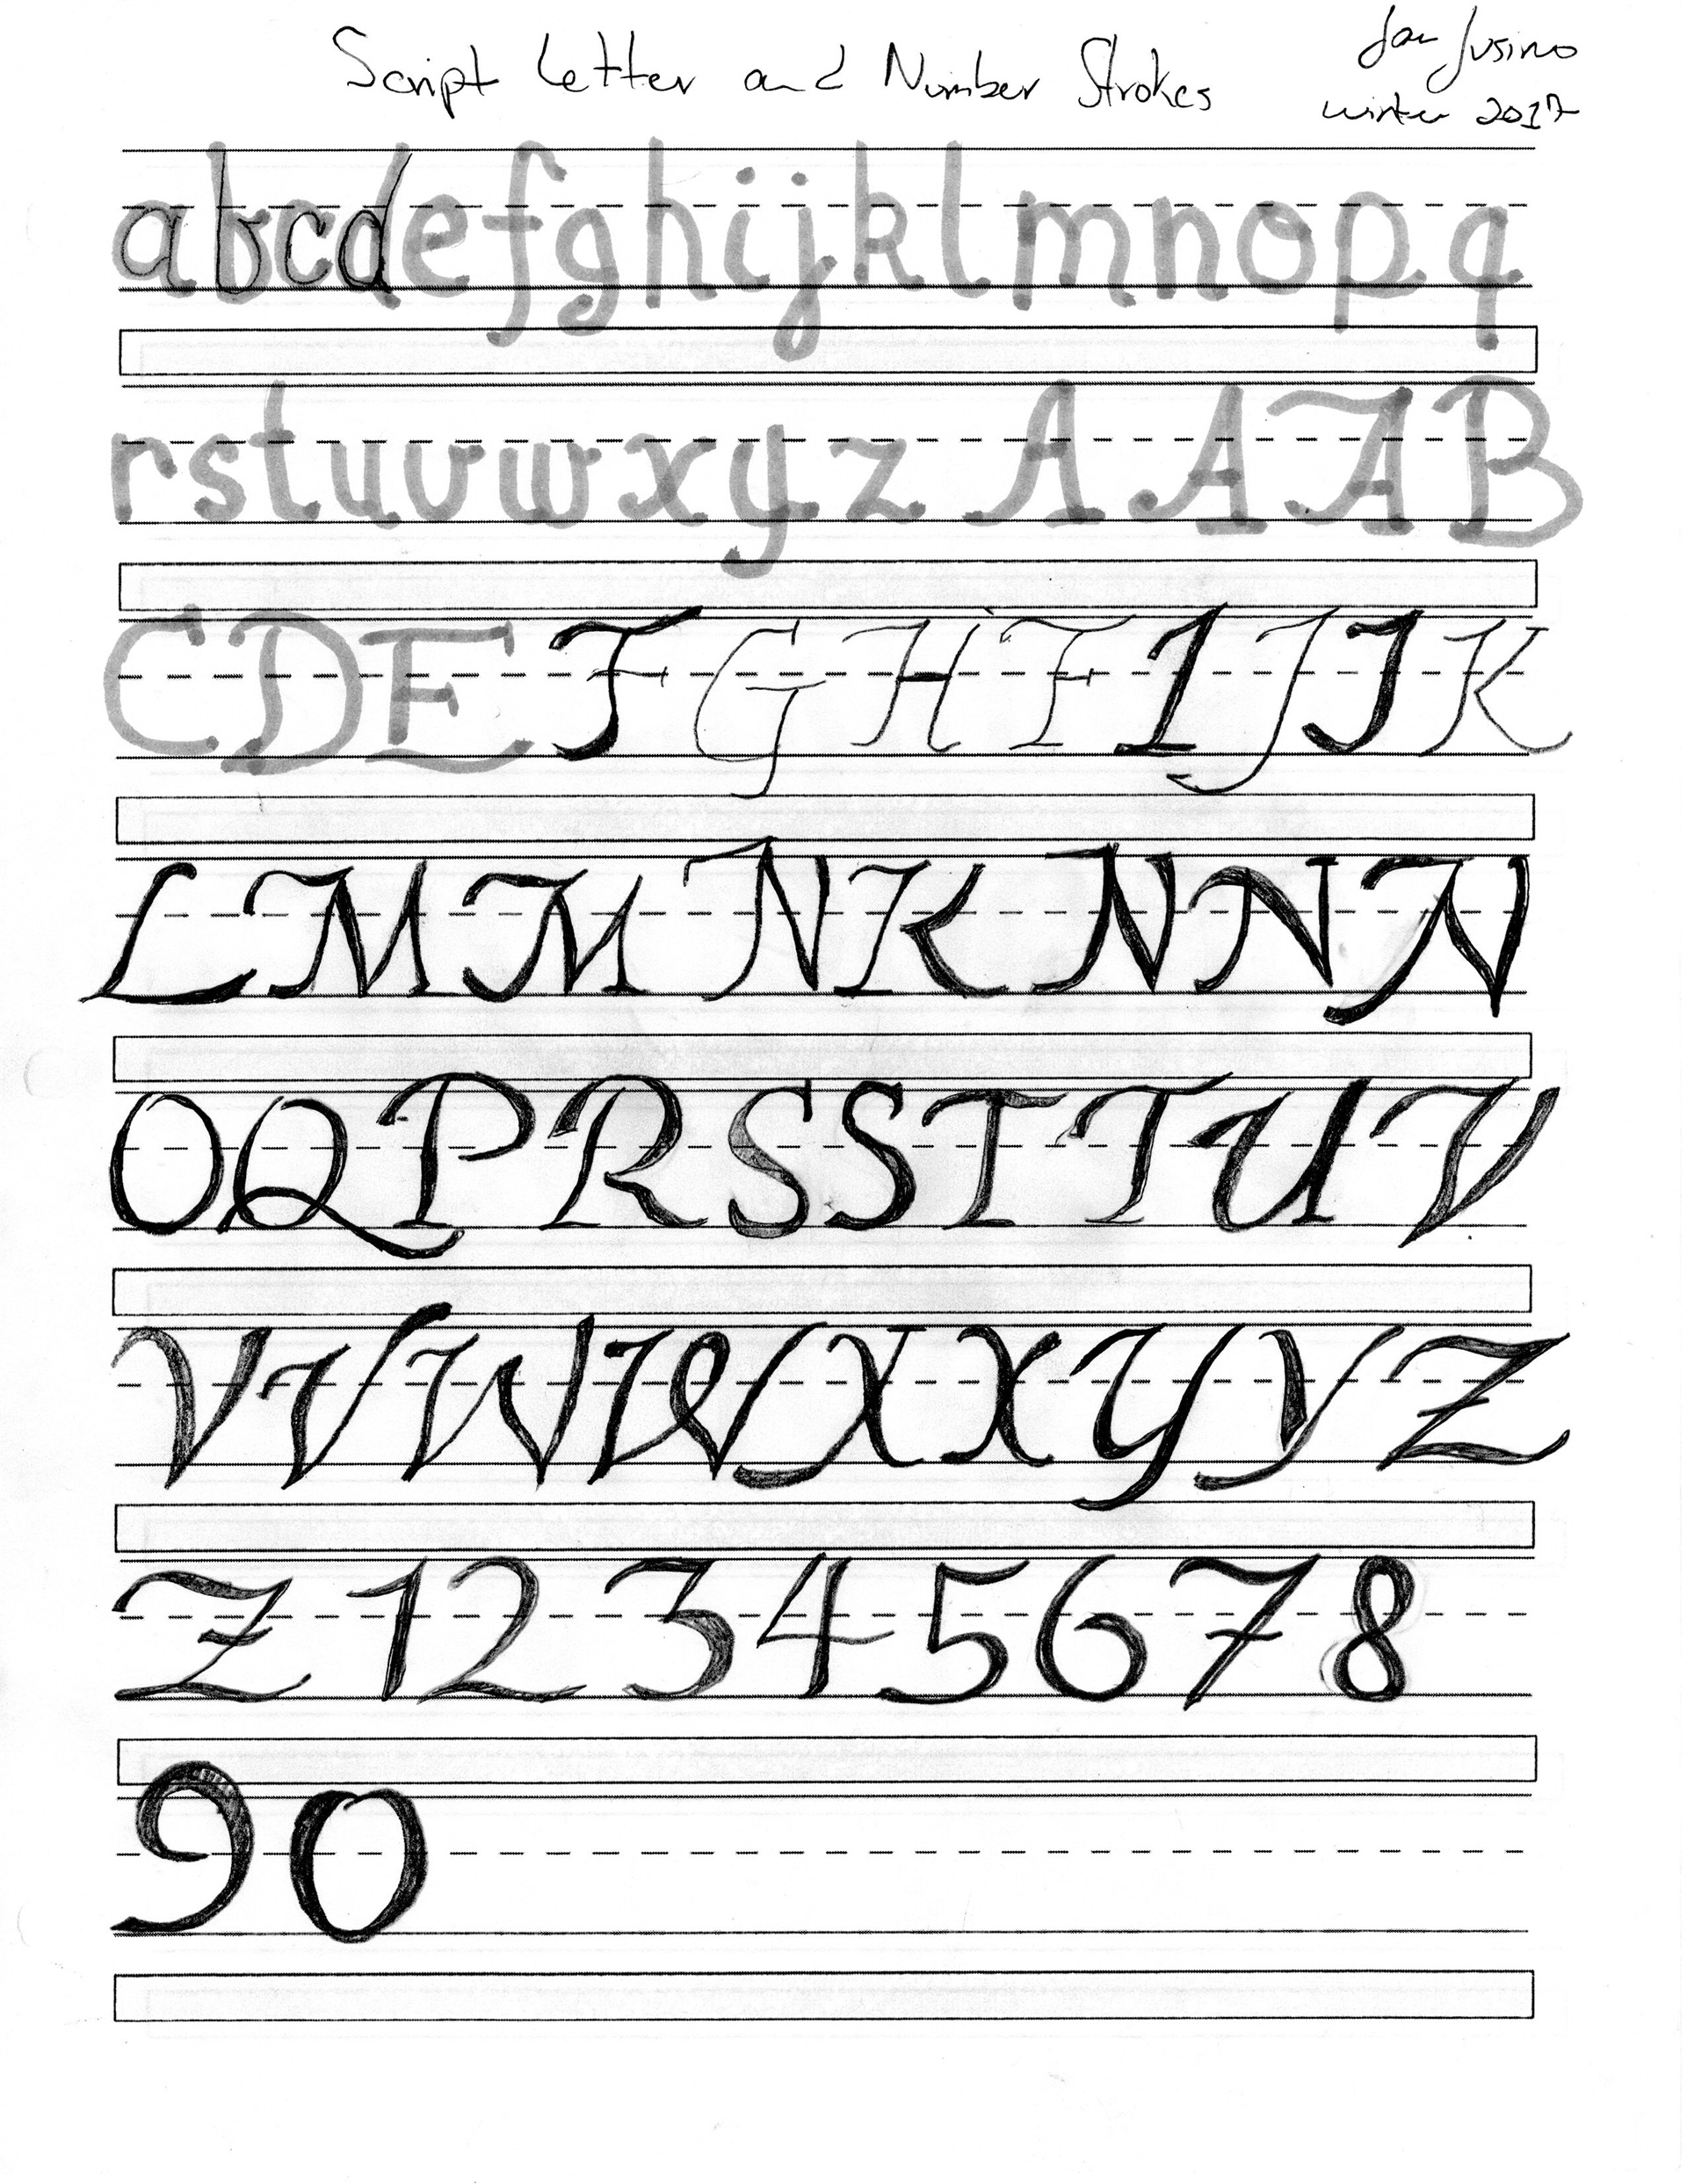 Script Letter and Number Strokes
Jan Jusino
winter 2017
abcdefghijklmnopq
rstuvwxyz AAAB
CDEFGHFIJJK
LMMNKNNN
OQPRSSTTUV
VVWWXXYYZ
Z12345678
90